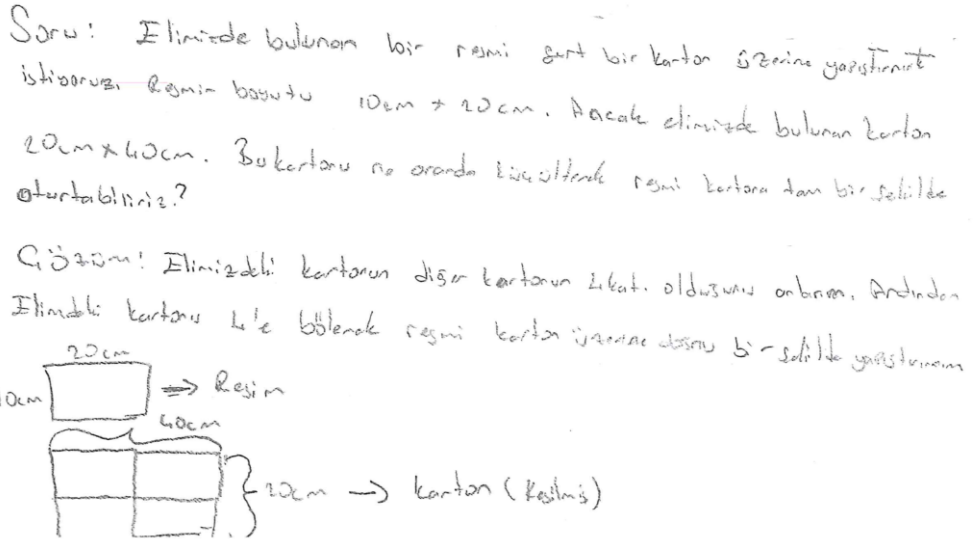 Soru: Elimizde bulunan bir resmi sert bir karton üzerine yapıştırmak
istiyoruz. Resmin boyutu 10cm x 20cm. Ancak elimizde bulunan karton
20cm x 40cm. Bu kartonu ne oranda küçülterek resmi kartona tam bir şekilde
oturtabiliriz?
Çözüm: Elimizdeki kartonun diğer kartonun 4 katı olduğunu anlarım. Ardından
Elimdeki kartonu 4'e bölerek resmi karton üzerine doğru bir şekilde yapıştırırım
20cm
10cm → Resim
40cm
20cm → karton (Kesilmiş)